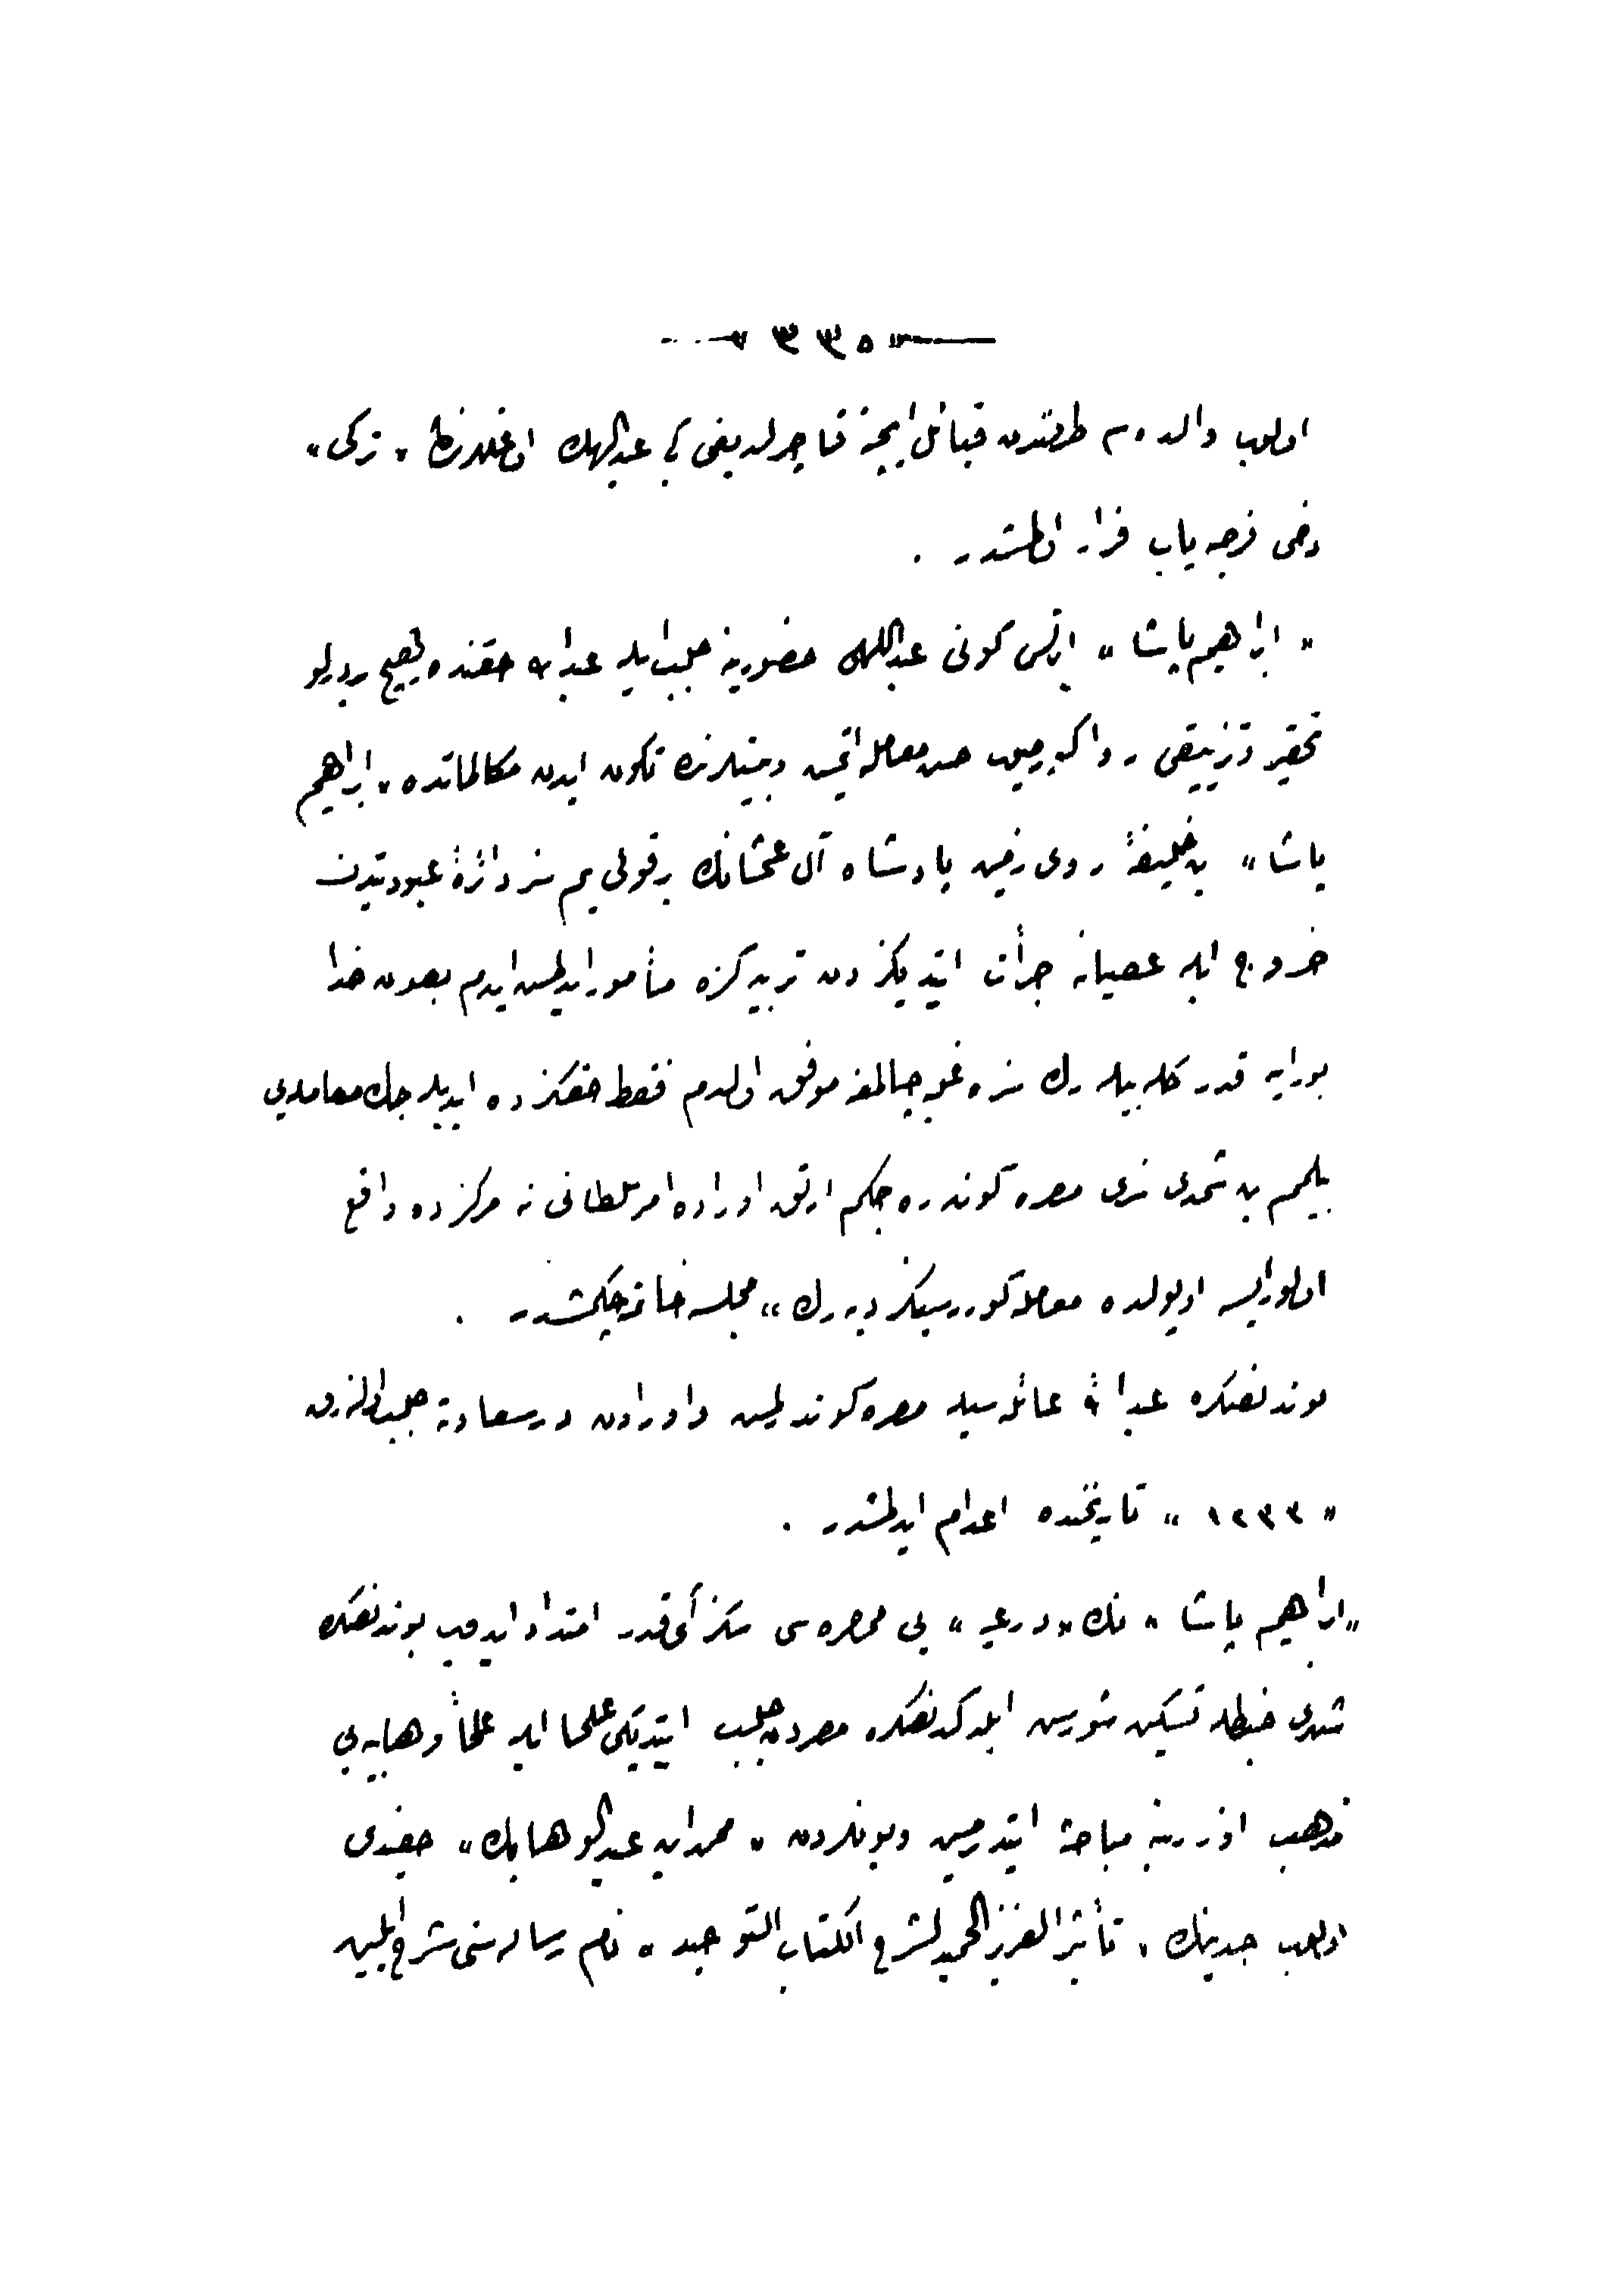 ٣٣٥
اولوب والده م طرفندن قبائل ایچنه قاچیرلدیغی کبی عبداللهك اوغللرندن « ترکی »
دخی فرجه یاب فرار اولمشدر .
« ابراهیم پاشا » ایرتسی کونی عبداللهی حضورینه جلب ایله عبدالله حقنده بر درلو
تحقیر وتزییفی روا کورمیوب حسن معامله ایتمش وبینلرنده تکون ایدن مکالماتده « ابراهیم
پاشا » بن خلیفهٔ روی زمین پادشاه آل عثمانك بر قولی یم سز دائرهٔ عبودیتدن
خروج ایله عصیانه جرأت ایتدیکزدن تربیه کزه مأمور ایدلمش ایدم بعون خدا
بورایه قدر کله بیله رك سزه غلبه چالمغه موفق اولدم فقط حقکزده ایدیله جك معامله یی
بیلمم بن شمدی سزی مصره کوندره جکم ارتق اوراده امر سلطانی نه مرکزده واقع
اولور ایسه اویولده معامله کوررسیکز دیه رك » مجلسه خاتمه چکمشدر .
بوندنصکره عبدالله عائله سیله مصره کوندرلمش واورادن درسعادته جلب اولنه رق
« ١٢٣٣ » تاریخنده اعدام ایدلمشدر .
« ابراهیم پاشا » نك « درعیه » یی محاصره سی سکز آی قدر امتداد ایدوب بوندنصکره
شهری ضبطله تسکین شورش ایلدکدنصکره مصردن جلب ایتدیکی علما ایله علماء وهابیه یی
مذهب اوزرینه مباحثه ایتدیرمش وبونلردن « محمد ابن عبدالوهابك » حفیدی
اولوب جدینك « تأثیر العزیز الحمید لشرح الکتاب التوحید » نام رساله سنی شرح ایلمیه